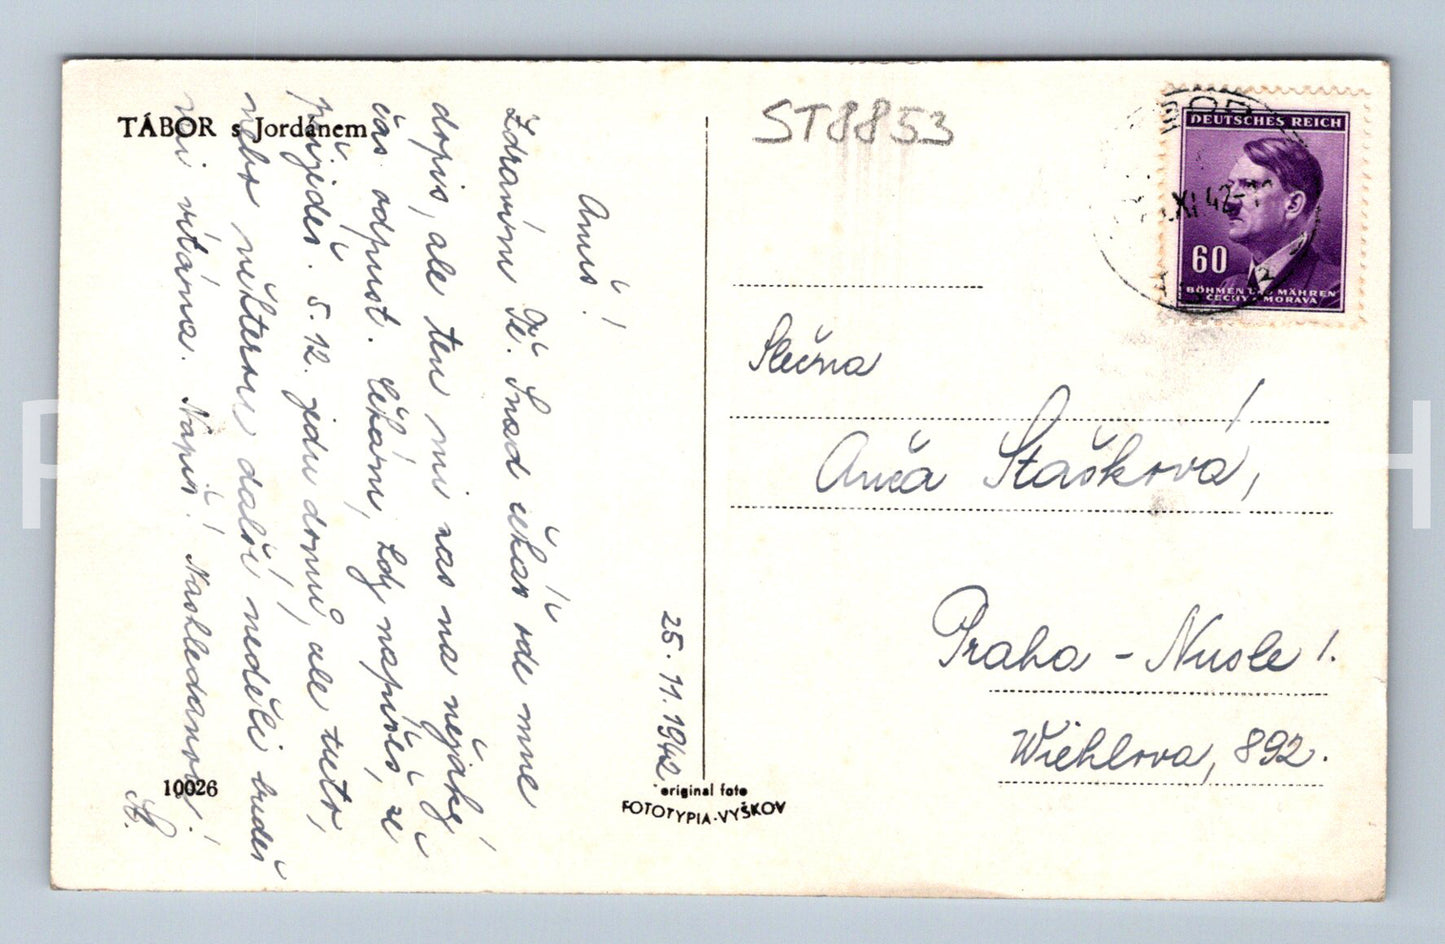 TÁBOR s Jordánem
Amiš!
Zdravím Tě. Snad čekáš ode mne
dopis, ale ten mi zas na nějaký
čas odpusť. Čekám, kdy napíšeš, že
přijedeš. 5.12. jedu domů, ale tuto,
nebo některou další neděli budeš
mi vítána. Napiš! Naskledanou!
A.
25.11.1942.
10026
original foto
FOTOTYPIA-VYŠKOV
ST8853
DEUTSCHES REICH
XI 42
60
BÖHMEN UND MÄHREN
ČECHY A MORAVA
Slečna
Anča Stašková,
Praha - Nusle I.
Wiehlova, 892.